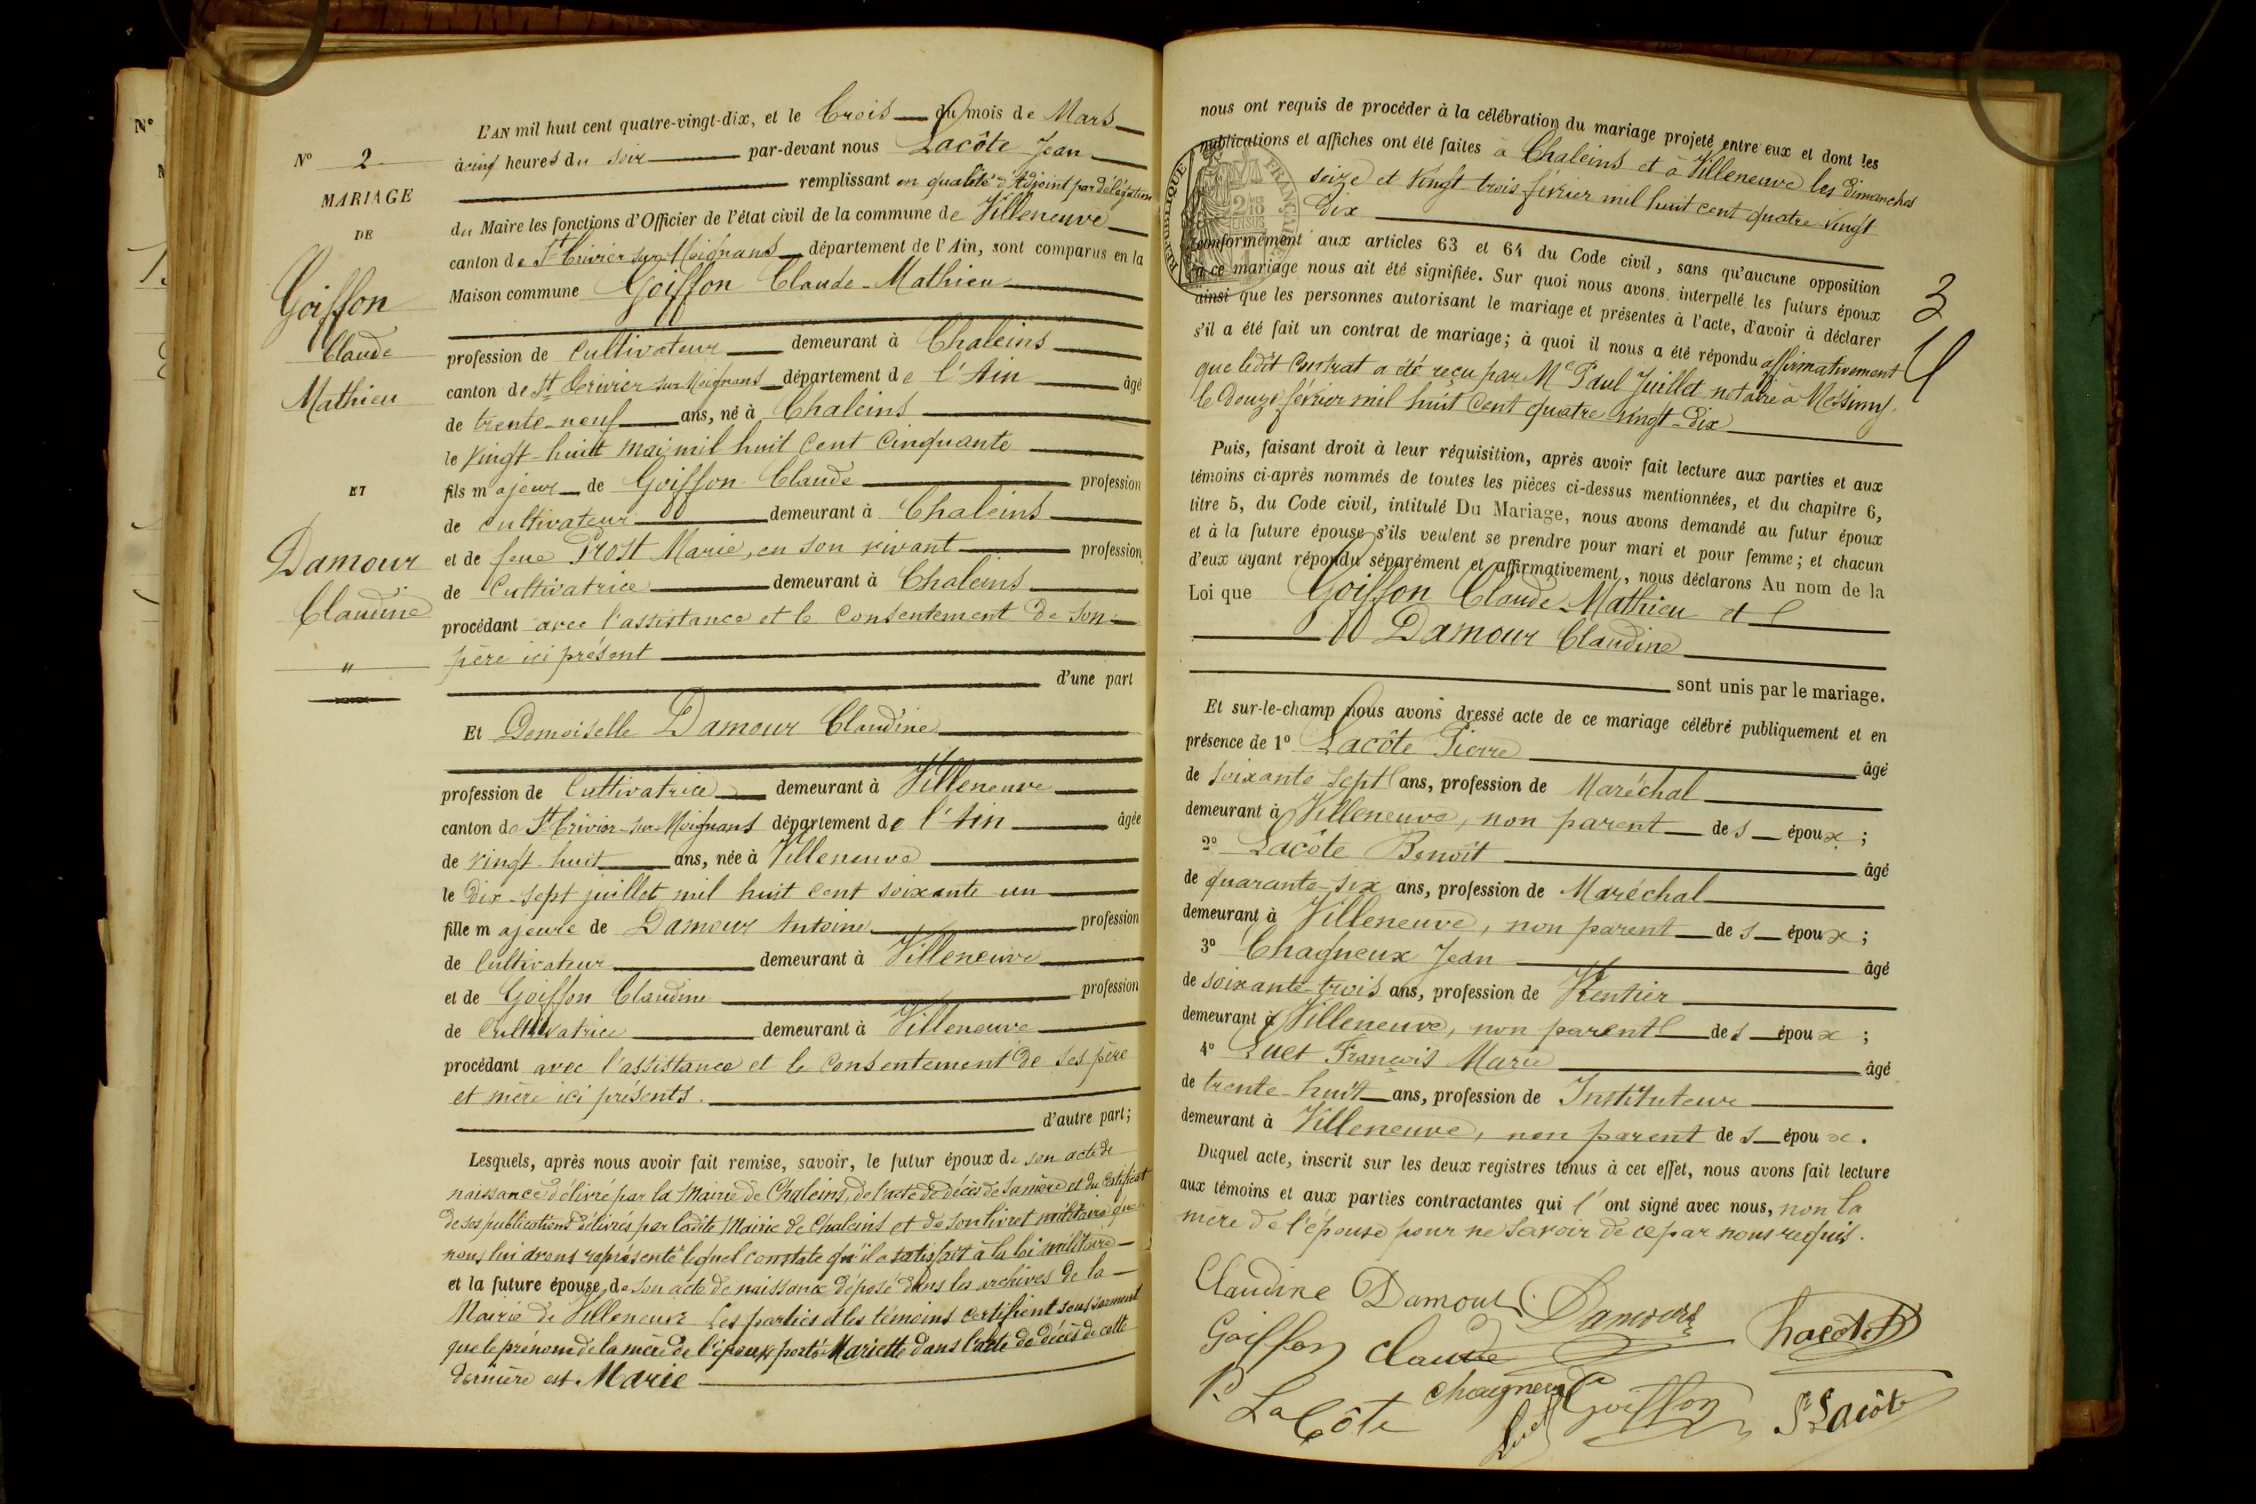 N° 2
MARIAGE
DE
Goiffon
Claude
Mathieu
ET
Damour
Claudine
"
L'AN mil huit cent quatre-vingt-dix, et le trois du mois de Mars
à cinq heures du soir par-devant nous Lacôte Jean
remplissant en qualité d'Adjoint par délégation
du Maire les fonctions d'Officier de l'état civil de la commune de Villeneuve
canton de St Trivier sur Moignans département de l'Ain, sont comparus en la
Maison commune Goiffon Claude-Mathieu
profession de Cultivateur demeurant à Chaleins
canton de St Trivier sur Moignans département de l'Ain âgé
de trente-neuf ans, né à Chaleins
le vingt-huit mai mil huit cent cinquante
fils majeur de Goiffon Claude profession
de cultivateur demeurant à Chaleins
et de feue Prost Marie, en son vivant profession
de Cultivatrice demeurant à Chaleins
procédant avec l'assistance et le consentement de son
père ici présent
d'une part
Et Demoiselle Damour Claudine
profession de Cultivatrice demeurant à Villeneuve
canton de St Trivier-sur-Moignans département de l'Ain âgée
de vingt-huit ans, née à Villeneuve
le dix-sept juillet mil huit cent soixante un
fille majeure de Damour Antoine profession
de Cultivateur demeurant à Villeneuve
et de Goiffon Claudine profession
de Cultivatrice demeurant à Villeneuve
procédant avec l'assistance et le consentement de ses père
et mère ici présents.
d'autre part;
Lesquels, après nous avoir fait remise, savoir, le futur époux de son acte de
naissance délivré par la Mairie de Chaleins, de l'acte de décès de sa mère et du certificat
de ses publications délivrés par ladite Mairie de Chaleins et de son livret militaire que
nous lui avons représenté lequel constate qu'il a satisfait à la loi militaire
et la future épouse, de son acte de naissance déposé dans les archives de la
Mairie de Villeneuve Les parties et les témoins certifient sous serment
que le prénom de la mère de l'époux porté Mariette dans l'acte de décès de cette
dernière est Marie
nous ont requis de procéder à la célébration du mariage projeté entre eux et dont les
publications et affiches ont été faites à Chaleins et à Villeneuve les dimanches
seize et vingt trois février mil huit cent quatre-vingt
dix
conformément aux articles 63 et 64 du Code civil, sans qu'aucune opposition
à ce mariage nous ait été signifiée. Sur quoi nous avons interpellé les futurs époux
ainsi que les personnes autorisant le mariage et présentes à l'acte, d'avoir à déclarer
s'il a été fait un contrat de mariage; à quoi il nous a été répondu affirmativement
que ledit contrat a été reçu par Me Paul Juillet notaire à Messimy
le douze février mil huit cent quatre vingt-dix
Puis, faisant droit à leur réquisition, après avoir fait lecture aux parties et aux
témoins ci-après nommés de toutes les pièces ci-dessus mentionnées, et du chapitre 6,
titre 5, du Code civil, intitulé Du Mariage, nous avons demandé au futur époux
et à la future épouse s'ils veulent se prendre pour mari et pour femme; et chacun
d'eux ayant répondu séparément et affirmativement, nous déclarons Au nom de la
Loi que Goiffon Claude-Mathieu et
Damour Claudine
sont unis par le mariage.
Et sur-le-champ nous avons dressé acte de ce mariage célébré publiquement et en
présence de 1° Lacôte Pierre âgé
de soixante sept ans, profession de Maréchal
demeurant à Villeneuve, non parent des époux;
2° Lacôte Benoît âgé
de quarante-six ans, profession de Maréchal
demeurant à Villeneuve, non parent des époux;
3° Chagneux Jean âgé
de soixante-trois ans, profession de Rentier
demeurant à Villeneuve, non parent des époux;
4° Luet François Marie âgé
de trente-huit ans, profession de Instituteur
demeurant à Villeneuve, non parent des époux.
Duquel acte, inscrit sur les deux registres tenus à cet effet, nous avons fait lecture
aux témoins et aux parties contractantes qui l'ont signé avec nous, non la
mère de l'épouse pour ne savoir de ce par nous requis.
Claudine Damour Damour Lacôte
Goiffon Claude
P. La Côte Chagneux Goiffon Lacôte
Luet
RÉPUBLIQUE FRANÇAISE
3
4
N°